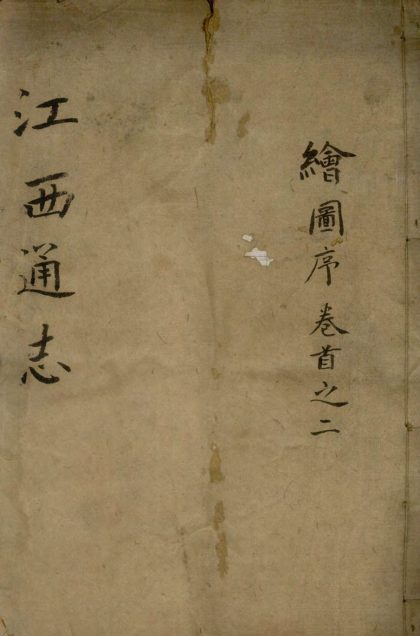 繪圖序 卷首之二
江西通志